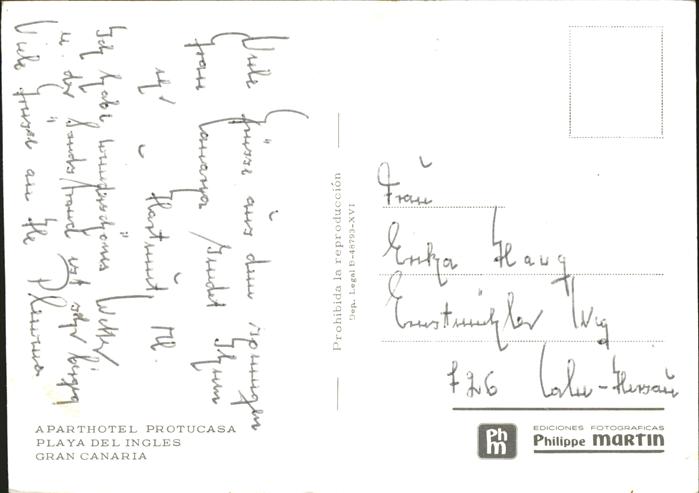 Viele Grüsse aus dem sonnigen
Gran Canaria sendet Ihnen
Ihr Hartmut M.
Ich habe wunderschönes Wetter
u. der Sandstrand ist sehr lang
Viele Grüsse an He.
Frau
Erika Haug
Weg
726 Calw-Hirsau
APARTHOTEL PROTUCASA
PLAYA DEL INGLES
GRAN CANARIA
Prohibida la reproducción
Dep. Legal B-48793-XVI
Ph m
EDICIONES FOTOGRAFICAS
Philippe MARTIN